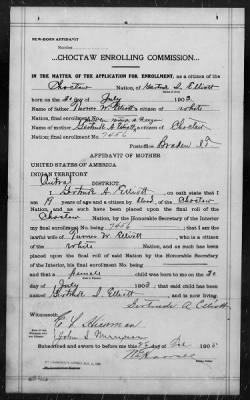 NEW-BORN AFFIDAVIT
Number
CHOCTAW ENROLLING COMMISSION.
IN THE MATTER OF THE APPLICATION FOR ENROLLMENT, as a citizen of the
Choctaw Nation, of Gertrude I. Elliott
born on the 30 day of July 1903.
Name of father Turner W. Elliott a citizen of white
Nation, final enrollment No.
Name of mother Gertrude A. Elliott a citizen of Choctaw
Nation, final enrollment No. 7456
Postoffice Braden I.T.
AFFIDAVIT OF MOTHER
UNITED STATES OF AMERICA
INDIAN TERRITORY
DISTRICT
I Gertrude A. Elliott, on oath state that I
am 19 years of age and a citizen by blood, of the Choctaw
Nation, and as such have been placed upon the final roll of the
Choctaw Nation, by the Honorable Secretary of the Interior
my final enrollment No. being 7456; that I am the
lawful wife of Turner W. Elliott, who is a citizen of the
white Nation, and as such has been
placed upon the final roll of said Nation by the Honorable Secretary of the Interior,
his final enrollment No. being and that a
female child was born to me on the 30
day of July 1903; that said child has been
named Gertrude I. Elliott, and is now living.
Gertrude A. Elliott
Witnesseth:
John S. Merryman
Subscribed and sworn to before me this day of 1905
Notary Public.